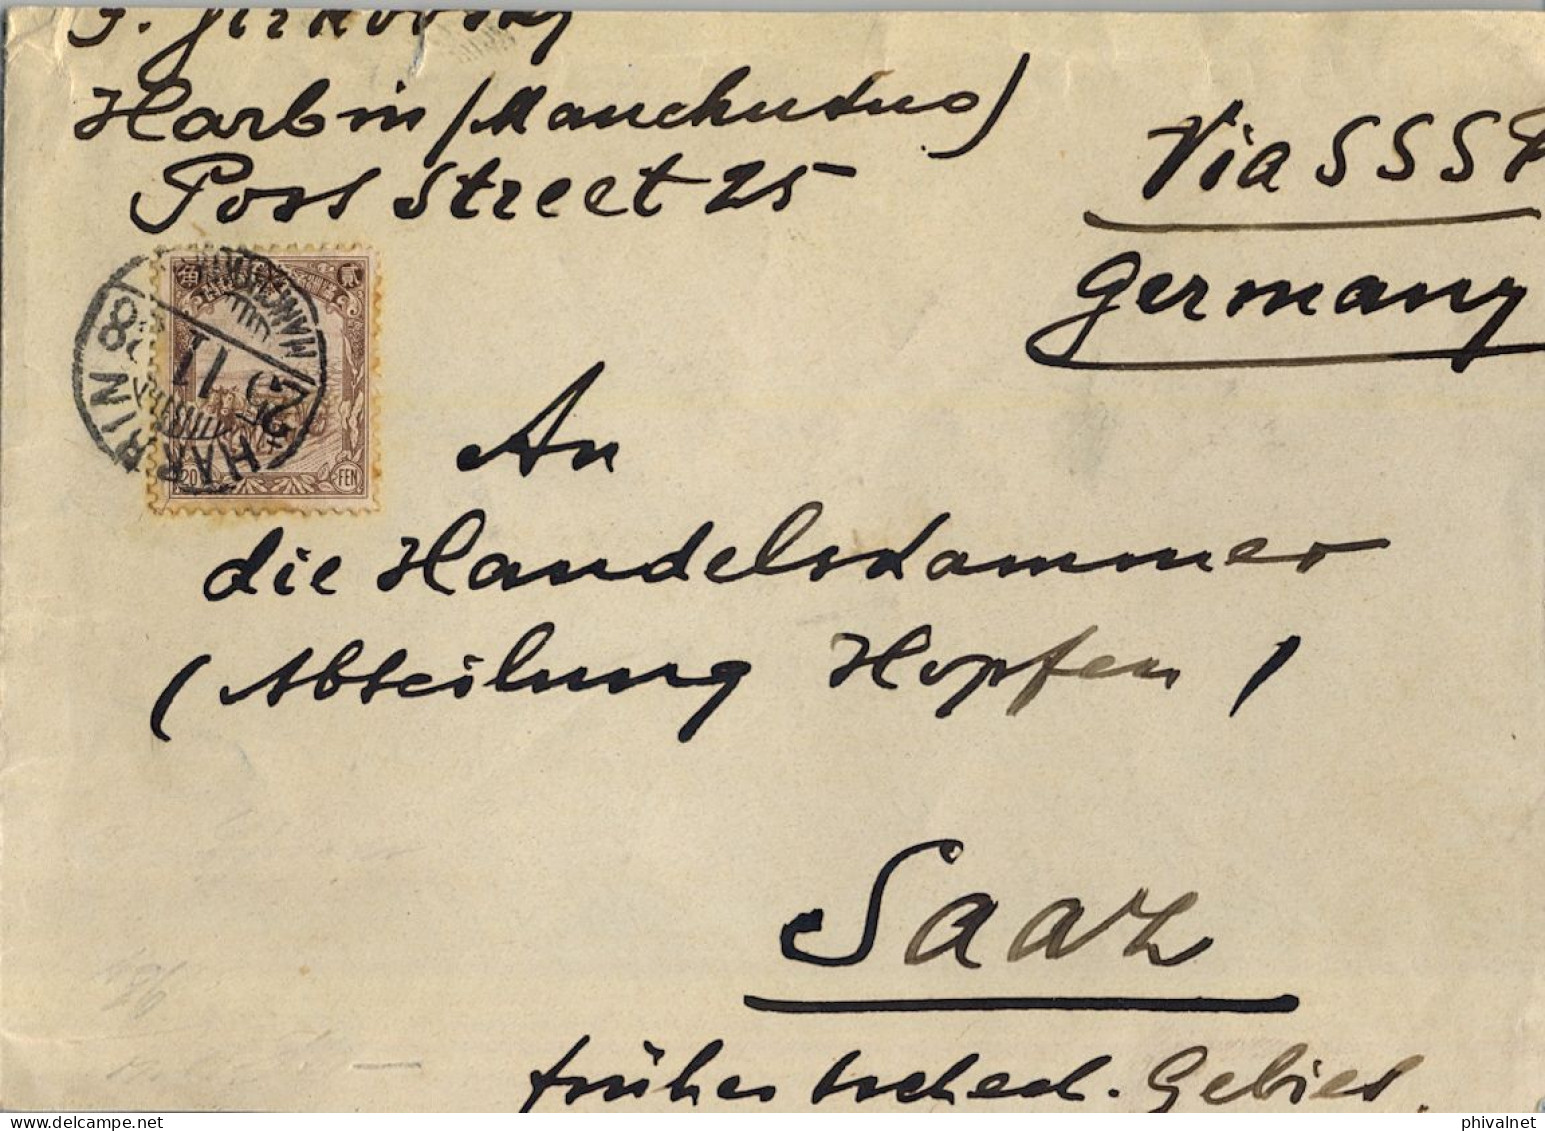 J. Jirkovsky
Harbin (Manchukuo)
Post Street 25
Via SSSR
Germany
20 FEN
HARBIN
MANCHURIA
8
11
An
die Handelskammer
(Abteilung Hopfen)
Saaz
früher tschech. Gebiet.
phivalnet